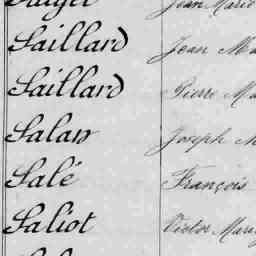 Jean Marie
Saillard Jean Ma
Saillard Pierre Ma
Salan Joseph M
Salé François
Saliot Victor Marie